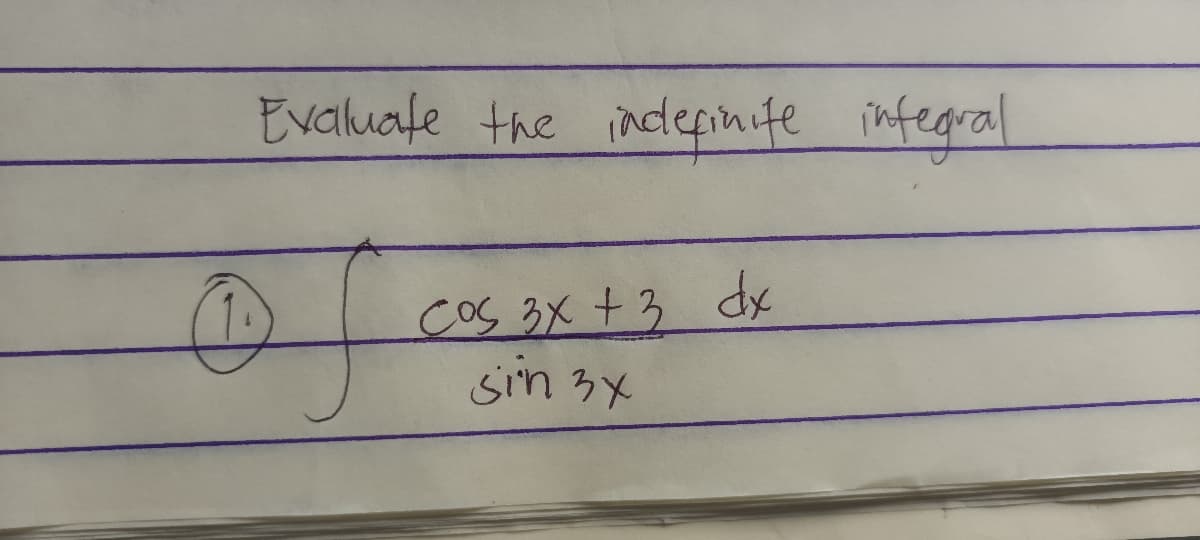 Evaluate the indefinite integral
1. ∫ cos 3x + 3 dx
sin 3x